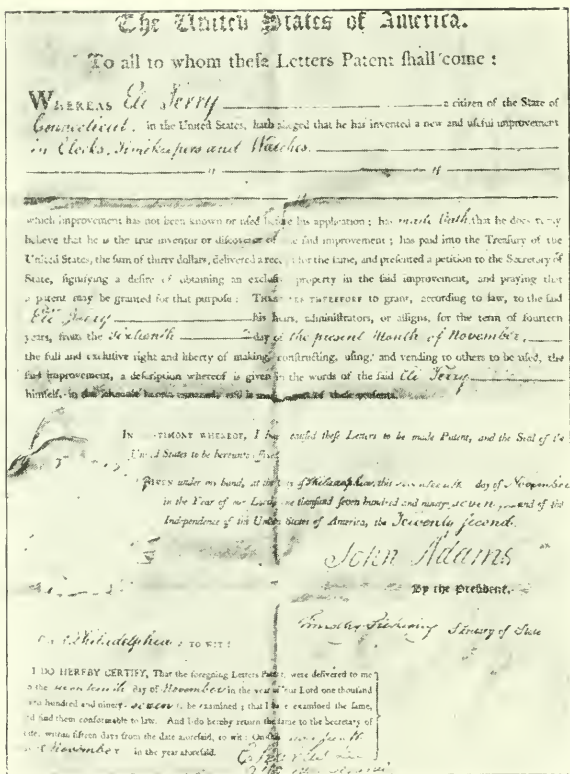 The United States of America.
To all to whom theſe Letters Patent ſhall come :
WHEREAS Eli Terry a citizen of the State of
Connecticut, in the United States, hath alleged that he has invented a new and uſeful improvement
in Clocks, Timekeepers and Watches.
which improvement has not been known or uſed before his application ; has made Oath that he does verily
believe that he is the true inventor or diſcoverer of the ſaid improvement ; has paid into the Treaſury of the
United States, the ſum of thirty dollars, delivered a receipt for the ſame, and preſented a petition to the Secretary of
State, ſignifying a deſire of obtaining an excluſive property in the ſaid improvement, and praying that
a patent may be granted for that purpoſe : THESE ARE THEREFORE to grant, according to law, to the ſaid
Eli Terry his heirs, adminiſtrators, or aſſigns, for the term of fourteen
years, from the Sixteenth day of the present Month of November,
the full and excluſive right and liberty of making, conſtructing, uſing, and vending to others to be uſed, the
ſaid improvement, a deſcription whereof is given in the words of the ſaid Eli Terry
himſelf, in the ſchedule hereto annexed, and is made part of theſe preſents.
IN TESTIMONY WHEREOF, I have cauſed theſe Letters to be made Patent, and the Seal of the
United States to be hereunto affixed.
GIVEN under my hand, at the City of Philadelphia, this day of November
in the Year of our Lord, one thouſand ſeven hundred and ninety seven and of the
Independence of the United States of America, the Twenty ſecond.
John Adams
By the Preſident.
Timothy Pickering Secretary of State
City of Philadelphia, TO WIT :
I DO HEREBY CERTIFY, That the foregoing Letters Patent, were delivered to me
on the day of November in the year of our Lord one thouſand
ſeven hundred and ninety seven to be examined ; that I have examined the ſame,
and find them conformable to law. And I do hereby return the ſame to the Secretary of
State, within fifteen days from the date aforeſaid, to wit : On this
of November in the year aforeſaid.